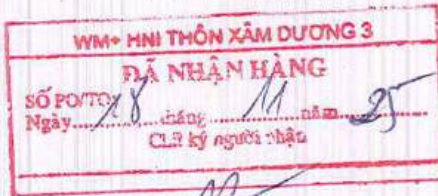 WM+ HNI THÔN XÂM DƯƠNG 3
ĐÃ NHẬN HÀNG
SỐ PO/TO:
Ngày 18 tháng 11 năm 25
CLR ký người nhận